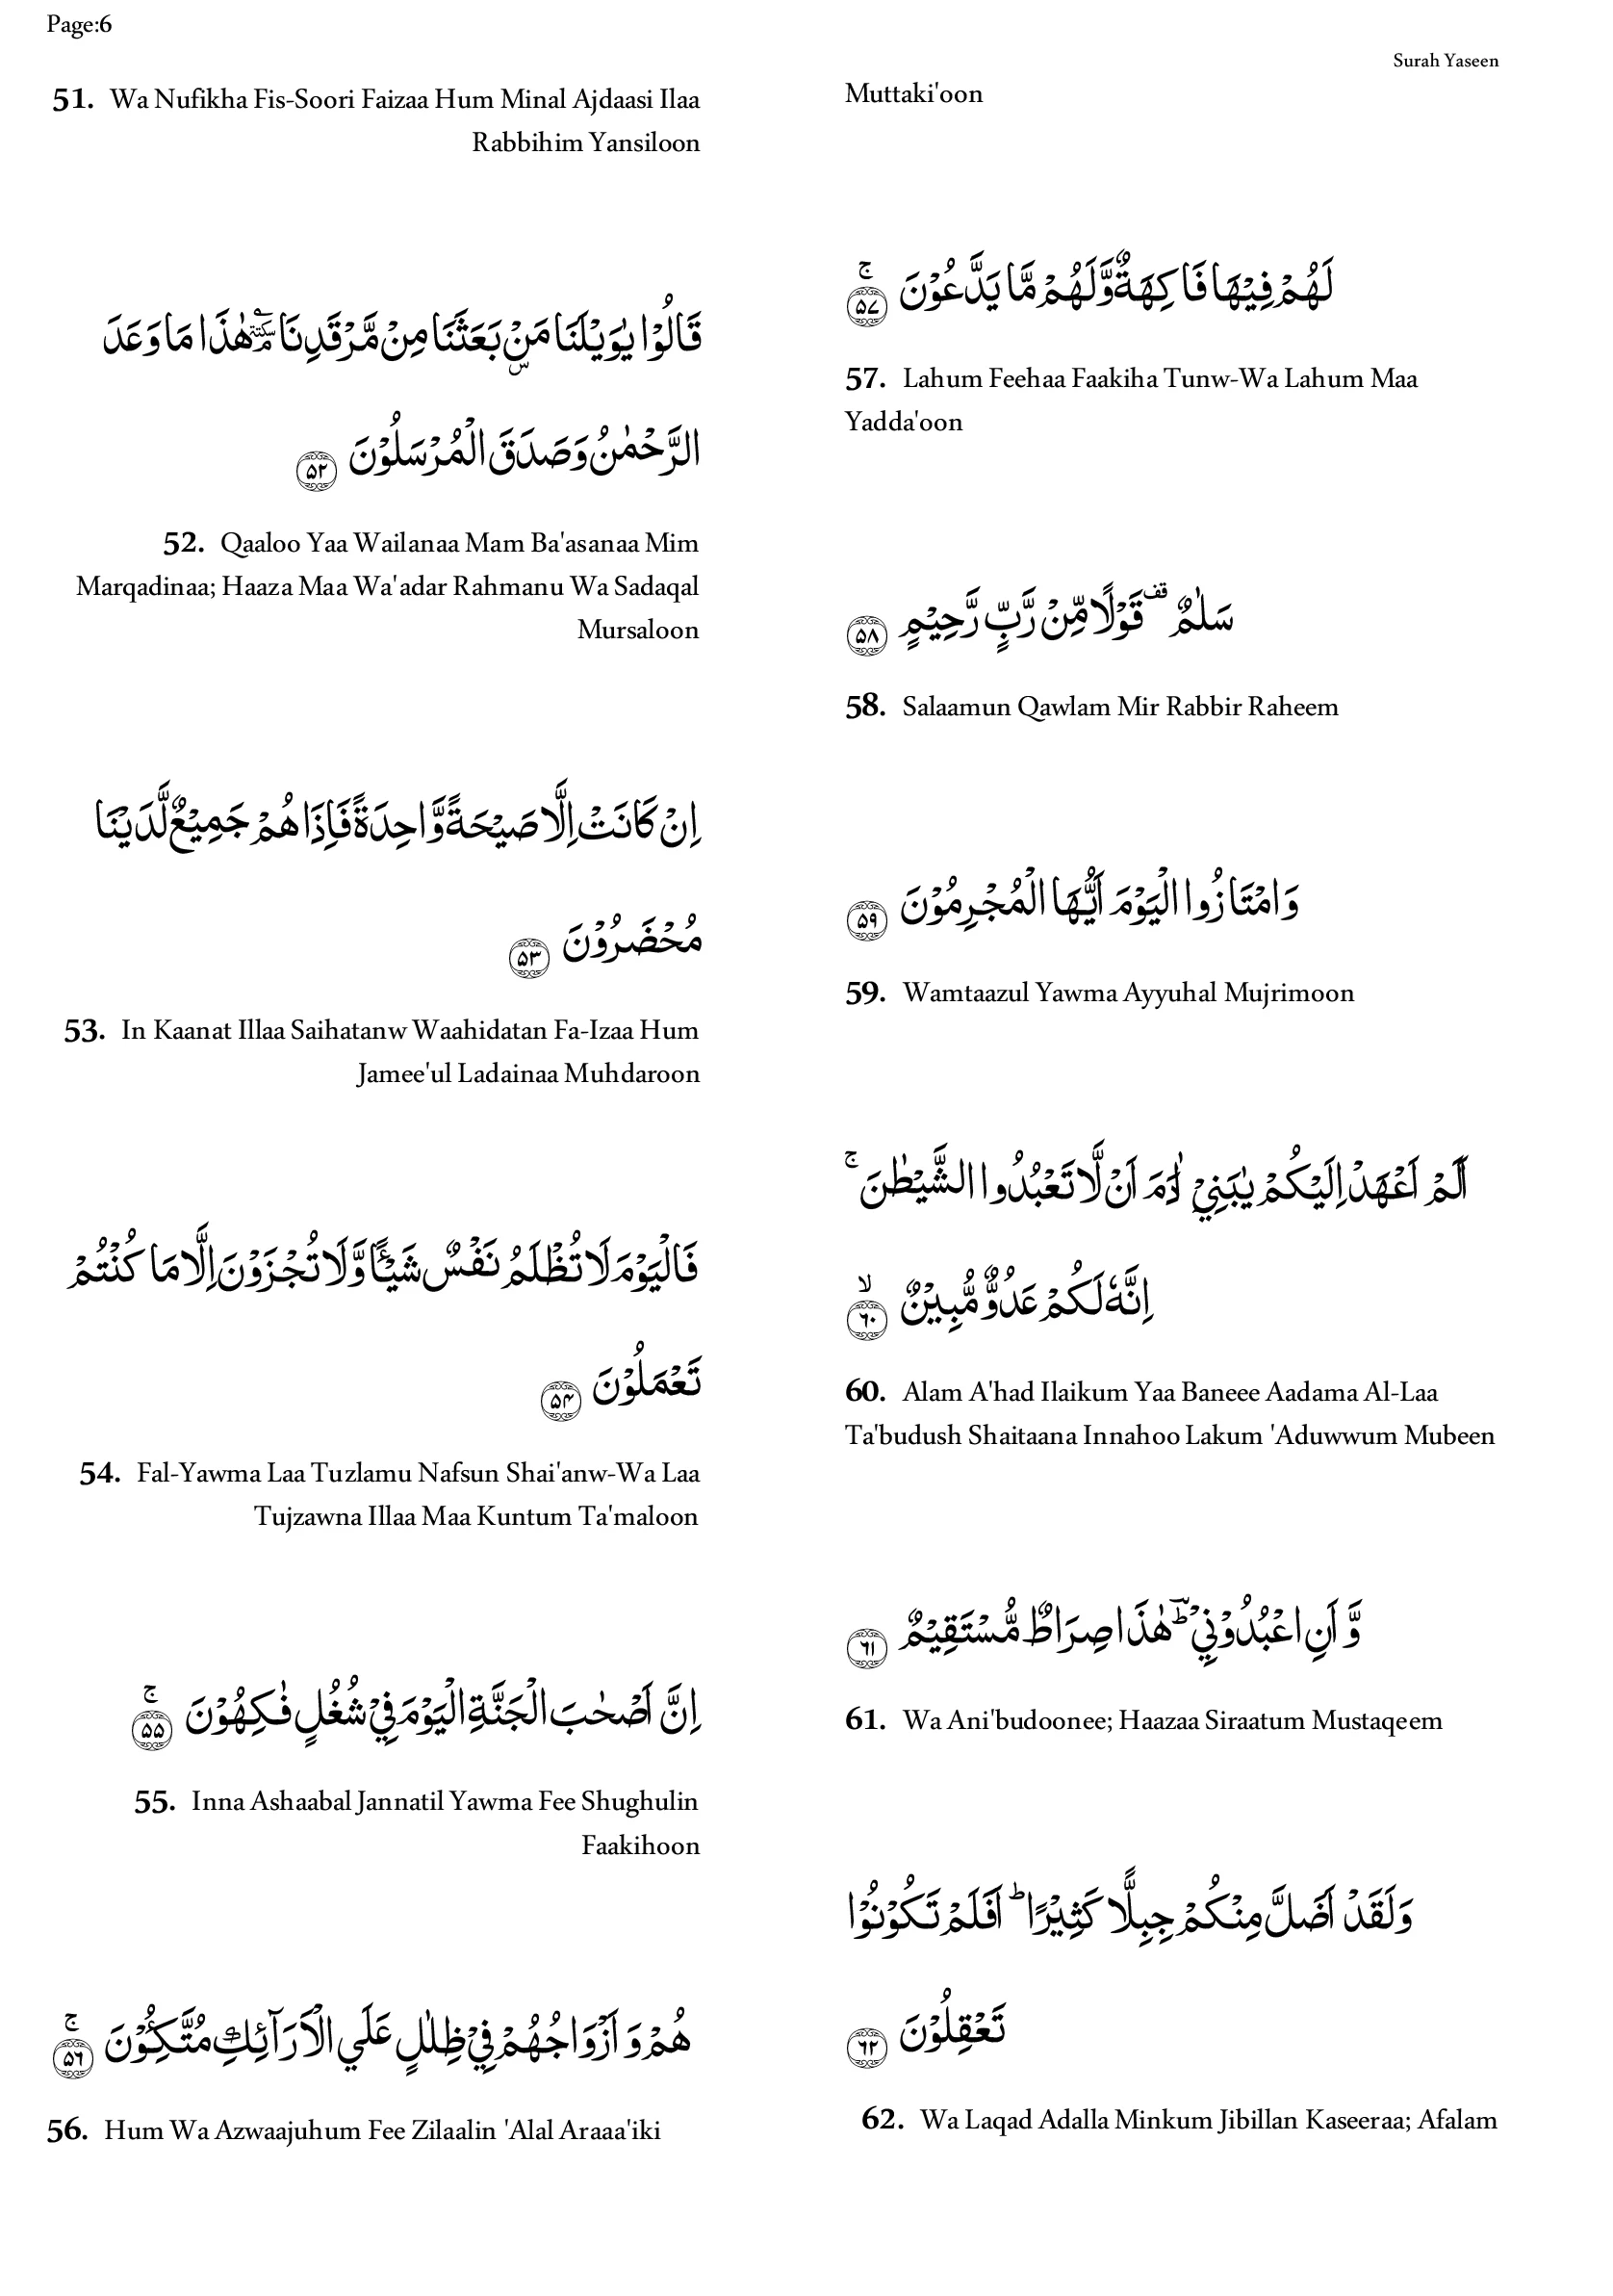 Page:6
Surah Yaseen
51. Wa Nufikha Fis-Soori Faizaa Hum Minal Ajdaasi Ilaa
Rabbihim Yansiloon
قَالُوْا يٰوَيْلَنَا مَنْۢ بَعَثَنَا مِنْ مَّرْقَدِنَا ۘ هٰذَا مَا وَعَدَ
الرَّحْمٰنُ وَصَدَقَ الْمُرْسَلُوْنَ ۵۲
52. Qaaloo Yaa Wailanaa Mam Ba'asanaa Mim
Marqadinaa; Haaza Maa Wa'adar Rahmanu Wa Sadaqal
Mursaloon
اِنْ كَانَتْ اِلَّا صَيْحَةً وَّاحِدَةً فَاِذَا هُمْ جَمِيْعٌ لَّدَيْنَا
مُحْضَرُوْنَ ۵۳
53. In Kaanat Illaa Saihatanw Waahidatan Fa-Izaa Hum
Jamee'ul Ladainaa Muhdaroon
فَالْيَوْمَ لَا تُظْلَمُ نَفْسٌ شَيْـًٔا وَّلَا تُجْزَوْنَ اِلَّا مَا كُنْتُمْ
تَعْمَلُوْنَ ۵۴
54. Fal-Yawma Laa Tuzlamu Nafsun Shai'anw-Wa Laa
Tujzawna Illaa Maa Kuntum Ta'maloon
اِنَّ اَصْحٰبَ الْجَنَّةِ الْيَوْمَ فِيْ شُغُلٍ فٰكِهُوْنَ ۚ ۵۵
55. Inna Ashaabal Jannatil Yawma Fee Shughulin
Faakihoon
هُمْ وَاَزْوَاجُهُمْ فِيْ ظِلٰلٍ عَلَي الْاَرَآئِكِ مُتَّكِـُٔوْنَ ۚ ۵۶
56. Hum Wa Azwaajuhum Fee Zilaalin 'Alal Araaa'iki
Muttaki'oon
لَهُمْ فِيْهَا فَاكِهَةٌ وَّلَهُمْ مَّا يَدَّعُوْنَ ۚ ۵۷
57. Lahum Feehaa Faakiha Tunw-Wa Lahum Maa
Yadda'oon
سَلٰمٌ ۣ قَوْلًا مِّنْ رَّبٍّ رَّحِيْمٍ ۵۸
58. Salaamun Qawlam Mir Rabbir Raheem
وَامْتَازُوا الْيَوْمَ اَيُّهَا الْمُجْرِمُوْنَ ۵۹
59. Wamtaazul Yawma Ayyuhal Mujrimoon
اَلَمْ اَعْهَدْ اِلَيْكُمْ يٰبَنِيْٓ اٰدَمَ اَنْ لَّا تَعْبُدُوا الشَّيْطٰنَ ۚ
اِنَّهٗ لَكُمْ عَدُوٌّ مُّبِيْنٌ ۙ ۶۰
60. Alam A'had Ilaikum Yaa Baneee Aadama Al-Laa
Ta'budush Shaitaana Innahoo Lakum 'Aduwwum Mubeen
وَّ اَنِ اعْبُدُوْنِيْ ؔؕ هٰذَا صِرَاطٌ مُّسْتَقِيْمٌ ۶۱
61. Wa Ani'budoonee; Haazaa Siraatum Mustaqeem
وَلَقَدْ اَضَلَّ مِنْكُمْ جِبِلًّا كَثِيْرًا ؕ اَفَلَمْ تَكُوْنُوْا
تَعْقِلُوْنَ ۶۲
62. Wa Laqad Adalla Minkum Jibillan Kaseeraa; Afalam